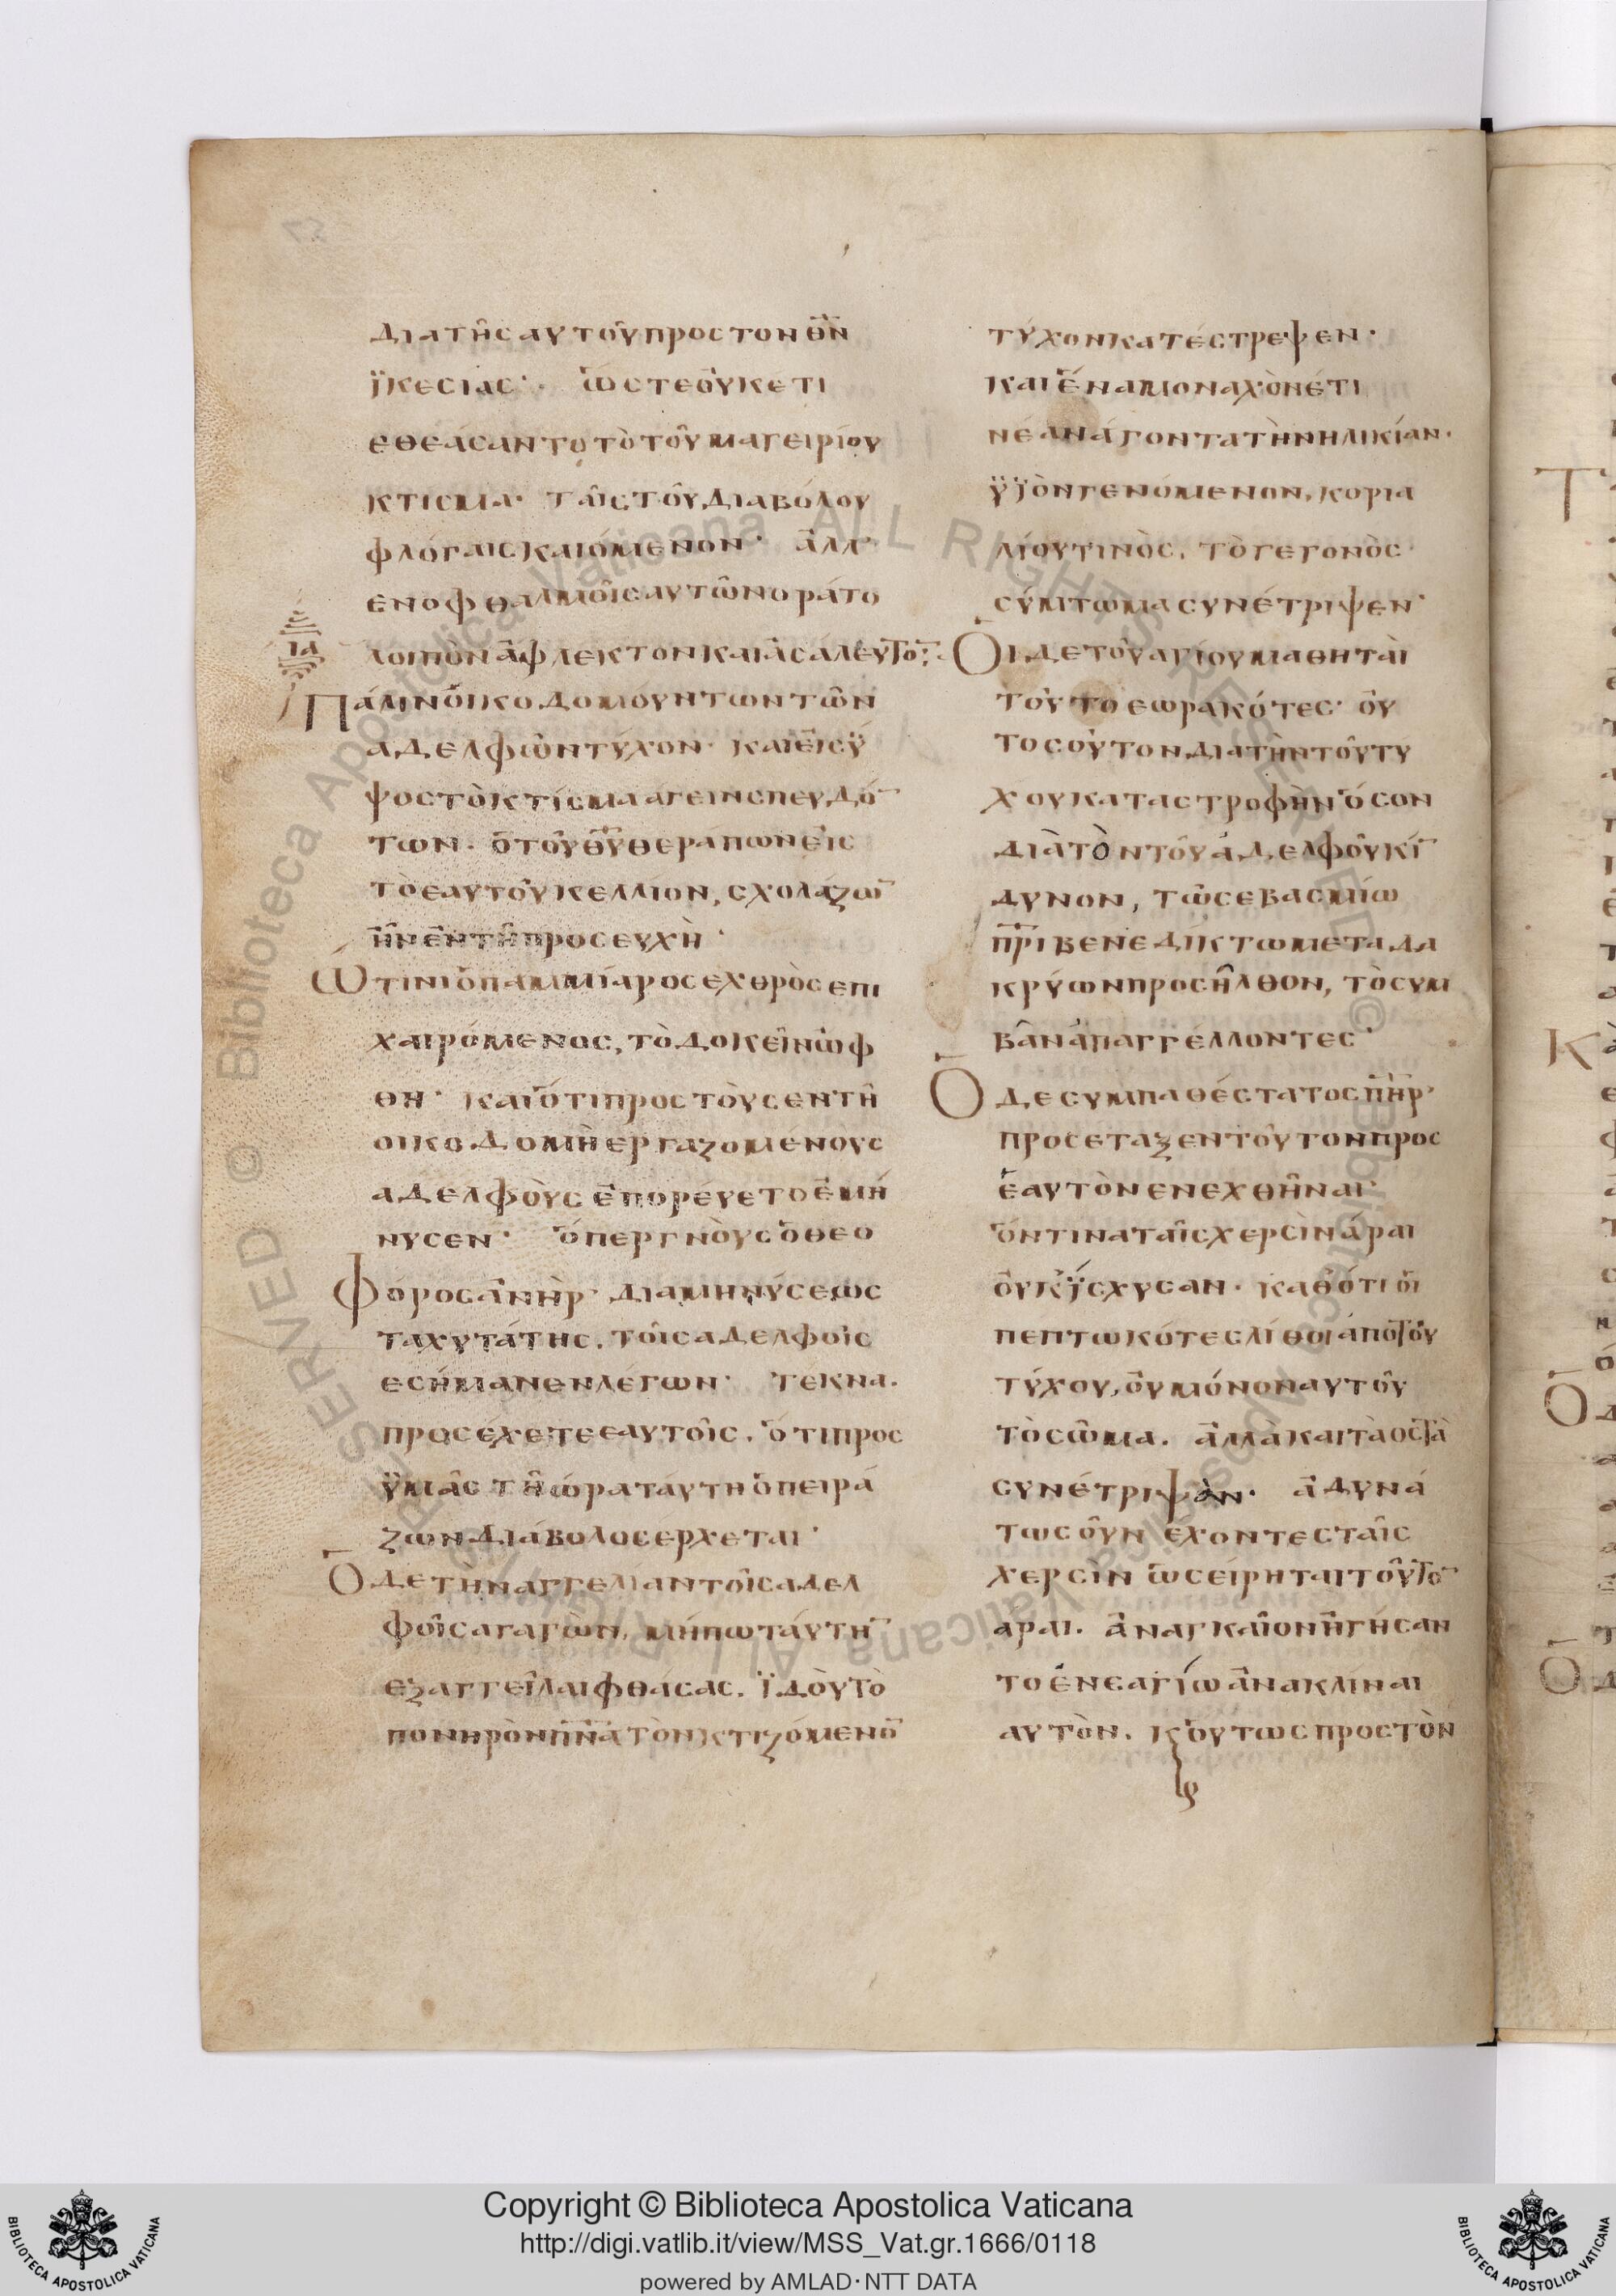 διατῆς αυτοῦ προς τον θ̅ν̅
ϊκεσίας· ὥστε οὐκετι
εθεάσαντο τὸ τοῦ μαγειρίου
κτισμα· ταῖς τοῦ διαβόλου
φλόγαις καιόμενον· ἀλλ'
ενοφθαλμοῖς αυτῶν ορᾶτο
ια
λοιπὸν ἄφλεκτον και ἀσάλευτο̅:
Πάλιν ὀικοδομούντων τῶν
αδελφῶν τύχον· και εἰς ὕ
ψος τὸ κτίσμα αγειν σπευδό̅
των. ὁ τοῦ θ̅υ̅ θεράπων εἰς
τὸ εαυτοῦ κελλίον, σχολάζω̅
ἦν ἐν τῆ προσευχὴ·
Ωτινι ὁ παμμίαρος εχθρὸς επι
χαιρόμενος, τὸ δοκεῖν ὤφ
θη· και ὅτι προς τοὺς εν τῆ
οικοδομὴ εργαζομένους
αδελφοὺς ἐπορεύετο ἐμή
νυσεν· ὅπερ γνοὺς ὁ θεο
Φόρος ἀνὴρ· διαμηνύσεως
ταχυτάτης, τοῖς αδελφοῖς
εσήμανεν λέγων· τέκνα.
προσέχετε εαυτοῖς. ὅτι προς
ὑμᾶς τῆ ὡρα ταύτη ὁ πειρά
ζων διάβολος ερχεται·
Ὁ δε τὴν αγγελιαν τοῖς αδελ
φοῖς αγαγὼν, μήπω ταύτη̅
εξαγγεῖλαι φθάσας. ϊδοὺ τὸ
πονηρὸν π̅ν̅α̅ τὸν κτιζόμενο̅
τύχον κατέστρεψεν·
και ἕνα μοναχὸν έτι
νεανάγοντα τὴν ηλικίαν.
ὑϊὸν γενόμενον, κορια
λίου τινὸς, τὸ γεγονὸς
σύμτωμα συνέτριψεν·
Οι δε τοῦ αγίου μαθηταὶ
τοῦτο εωρακότες· οὐ
τοσοῦτον δια τὴν τοῦ τυ
χου καταστροφὴν ὅσον
διὰ τὸν τοῦ ἀδελφοῦ κί̅
δυνον, τῶ σεβασμίω
π̅ρ̅ι̅ βενεδίκτω μετα δα
κρύων προσῆλθον, τὸ συμ
βὰν ἀπαγγέλλοντες·
Ὁ δε συμπαθέστατος π̅η̅ρ̅·
προσεταξεν τοῦτον προς
ἑαυτὸν ενεχθῆναι·
ὅντινα ταῖς χερσὶν ἆραι
οὐκ ΐσχυσαν. καθότι ὁι
πεπτωκότες λίθοι ἀπὸ τοῦ
τύχου, οὐ μόνον αυτοῦ
τὸ σῶμα. ἀλλὰ και τὰ οστᾶ
συνέτριψαν· ἀδυνά
τως οὖν έχοντες ταῖς
χερσὶν ὡς είρηται τοῦτο̅
αραι. ἀναγκαῖον ἡγήσαν
το ἐν εαγίω ἀνακλιναι
αυτὸν. κ̀ οὕτως προς τὸν
Copyright © Biblioteca Apostolica Vaticana
http://digi.vatlib.it/view/MSS_Vat.gr.1666/0118
powered by AMLAD·NTT DATA